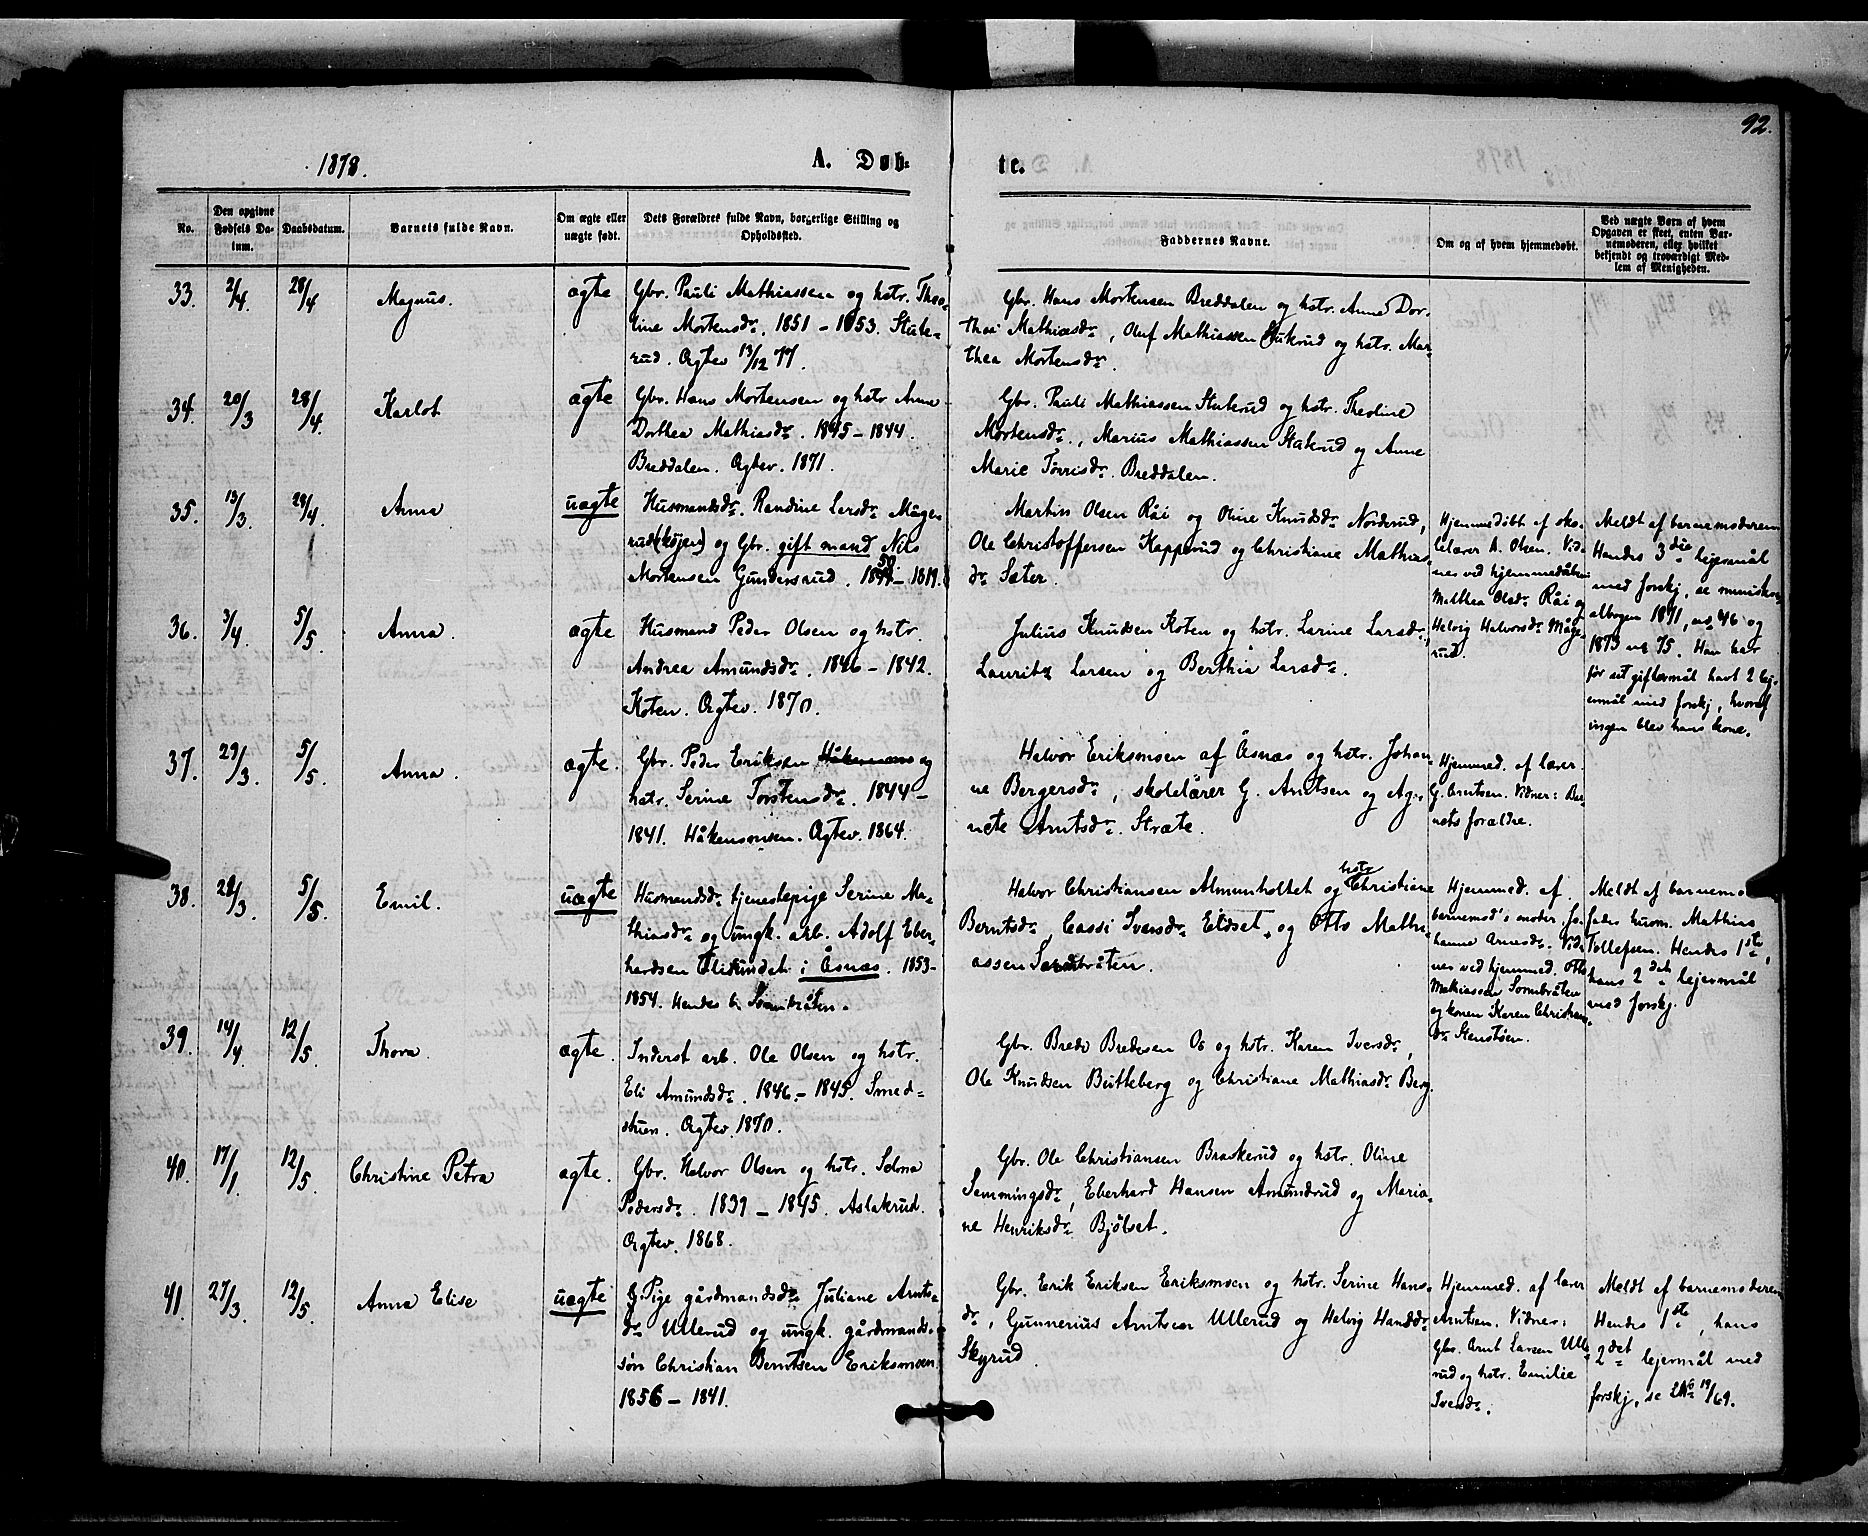 92.
1878.
A. Døb-
te.
No.
Den opgivne Fødsels Da-tum.
Daabsdatum.
Barnets fulde Navn.
Om ægte eller uægte født.
Dets Forældres fulde Navn, borgerlige Stilling og Opholdssted.
Faddernes Navne.
Om og af hvem hjemmedøbt.
Ved uægte Børn af hvem Opgaven er skeet, enten Bar-nemoderen, eller hvilket bekjendt og troværdigt Med-lem af Menigheden.
33. 2/4. 28/4 Magnus. ægte
Gbr. Pauli Mathiassen og hstr. Theo-
line Mortensdr. 1851 - 1853. Stuke-
rud. Ægtev 13/12 77.
Gbr. Hans Mortensen Breddalen og hstr. Anne Dor-
thea Mathiasdr., Oluf Mathiassen Stukrud og hstr. Mar-
thea Mortensdr.
34. 20/3 28/4. Karlot ægte
Gbr. Hans Mortensen og hstr. Anne
Dorthea Mathiasdr. 1845 - 1844.
Breddalen. Ægtev. 1871.
Gbr. Pauli Mathiassen Stukerud og hstr. Theoline
Mortensdr., Marius Mathiassen Stukrud og Anne
Marie Torrisdr. Breddalen.
35. 13/3. 28/4. Anna uægte
Husmandsdr. Randine Larsdr. Måge-
rud (köjen) og Gbr. gift mand Nils
Mortensen Gundersrud. 1850 - 1819.
Martin Olsen Råi og Oline Knudsdr. Norderud,
Ole Christoffersen Kapperud og Christiane Mathias-
dr. Sæter.
Hjemmedöbt af sko-
lelærer A. Olsen. Vid-
nes ved hjemmedåben
Mathea Olsdr. Råi og
Helvig Halvorsdr. Måge-
rud.
Meldt af barnemoderen
Hendes 3die lejersmål
med forskj, se ministeri-
albogen 1871, no 46 og
1873 no 75. Han har
før sit giftermål havt 2 lej-
ermål med forskj, hvoraf
ingen blev hans kone.
36. 3/4. 5/5 Anna. ægte
Husmand Peder Olsen og hstr.
Andrea Amundsdr. 1846 - 1842.
Koten. Ægtev. 1870.
Julius Knudsen Koten og hstr. Larine Larsdr.,
Lauritz Larsen og Berthia Larsdr.
37. 29/3. 5/5. Anna. ægte.
Gbr. Peder Eriksen og
hstr. Serine Torstensdr. 1844 -
1841. Håkensonsen. Ægtev. 1864.
Halvor Eriksmoen af Åsnæs og hstr. Johan-
ne Bergersdr., skolelærer G. Arntsen og Ag-
nete Arntsdr. Stræte.
Hjemmed. af lærer
G. Arntsen. Vidner: Bar-
nets forældre.
38. 28/3. 5/5. Emil. uægte
Husmandsdr. tjenestepige Serine Ma-
thiasdr. og ungk. arb. Adolf Eber-
hardsen i Åsnæs. 1853-
1854. Hendes h. Sormbråten.
Halvor Christiansen Almenholtet og hstr. Christiane
Berntsdr., Cassi Iversdr. Eldset, og Otto Mathi-
assen Sormbråten.
Hjemmed. af
barnemod's moder Jo-
hanne Arnesdr. Vid-
nes ved hjemmed. Otto
Mathiassen Sormbråten
og konen Karen Christians-
dr. Stenstöen.
Meldt af barnemo-
fader husm. Mathias
Tollefsen. Hendes 1ste,
hans 2det lejermål
med forskj.
39. 14/4. 12/5. Thora. ægte.
Inderst arb. Ole Olsen og hstr.
Eli Amundsdr. 1846. - 1845. Smed-
stuen. Ægtev. 1870.
Gbr. Brede Bredesen Os og hstr. Karen Iversdr.,
Ole Knudsen Butteberg og Christiane Mathiasdr. Berg.
40. 17/1. 12/5. Christine Petra ægte.
Gbr. Halvor Olsen og hstr. Selma
Pedersdr. 1839 - 1845. Aslakrud.
Ægtev. 1868.
Gbr. Ole Christiansen Braskerud og hstr. Oline
Semmingsdr., Eberhard Hansen Amundrud og Maria-
ne Henriksdr. Bjölset.
41. 27/3. 12/5. Anna Elise uægte
Pige gårdmandsdr. Juliane Arnts-
dr. Ullerud og ungk. gårdmands-
sön Christian Berntsen Eriksmoen.
1856 - 1841.
Gbr. Erik Eriksen Eriksmoen og hstr. Serine Hans-
dr., Gunnerius Arntsen Ullerud og Helvig Hansdr.
Skyrud.
Hjemmed. af lærer
Arntsen. Vidnes:
Gbr. Arnt Larsen Ulle-
rud og hstr. Emilie
Iversdr.
Meldt af barnemoderen
Hendes 1ste, hans
2det lejermål med
forskj, se 19/69.